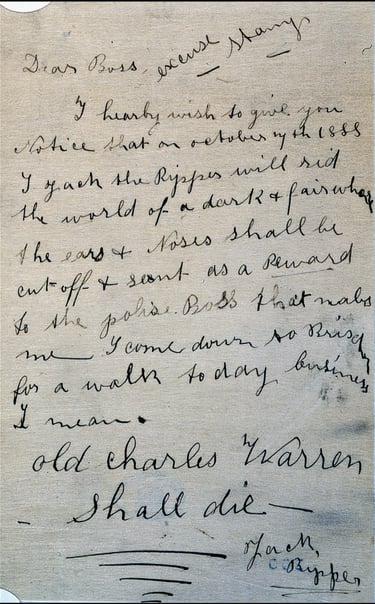 Dear Boss, excuse stamp
I hearby wish to give you
Notice that on october 7th 1888
I Jack the Ripper will rid
the world of a dark & fair whore
the ears & Noses shall be
cut off & sent as a Reward
to the polise. Boss that makes
me I come down to
for a walk to day business
I mean.
old Charles Warren
Shall die
Jack,
Ripper